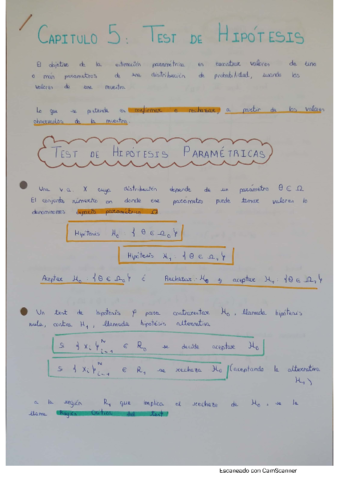 CAPITULO 5: TEST DE HIPÓTESIS
El objetivo de la estimación paramétrica es encontrar valores de uno
o más parámetros de una distribución de probabilidad, usando los
valores de una muestra.
Lo que se pretende es confirmar o rechazar a partir de los valores
observados de la muestra.
TEST DE HIPÓTESIS PARAMÉTRICAS
Una v.a. X cuya distribución depende de un parámetro θ ∈ Ω
El conjunto numérico en donde ese parámetro puede tomar valores lo
denominamos espacio paramétrico Ω
Hipótesis H₀ { θ ∈ Ω₀ }
Hipótesis H₁ { θ ∈ Ω₁ }
Aceptar H₀ { θ ∈ Ω₀ } ó Rechazar H₀ y aceptar H₁ { θ ∈ Ω₁ }
Un test de hipótesis para contrastar H₀, llamada hipótesis
nula, contra H₁, llamada hipótesis alternativa
Si { xᵢ }ⁿᵢ₌₁ ∈ R₀ se decide aceptar H₀
Si { xᵢ }ⁿᵢ₌₁ ∈ R₁ se rechaza H₀ (aceptando la alternativa
H₁)
a la región R₁ que implica el rechazo de H₀, se le
llama región crítica del test
Escaneado con CamScanner